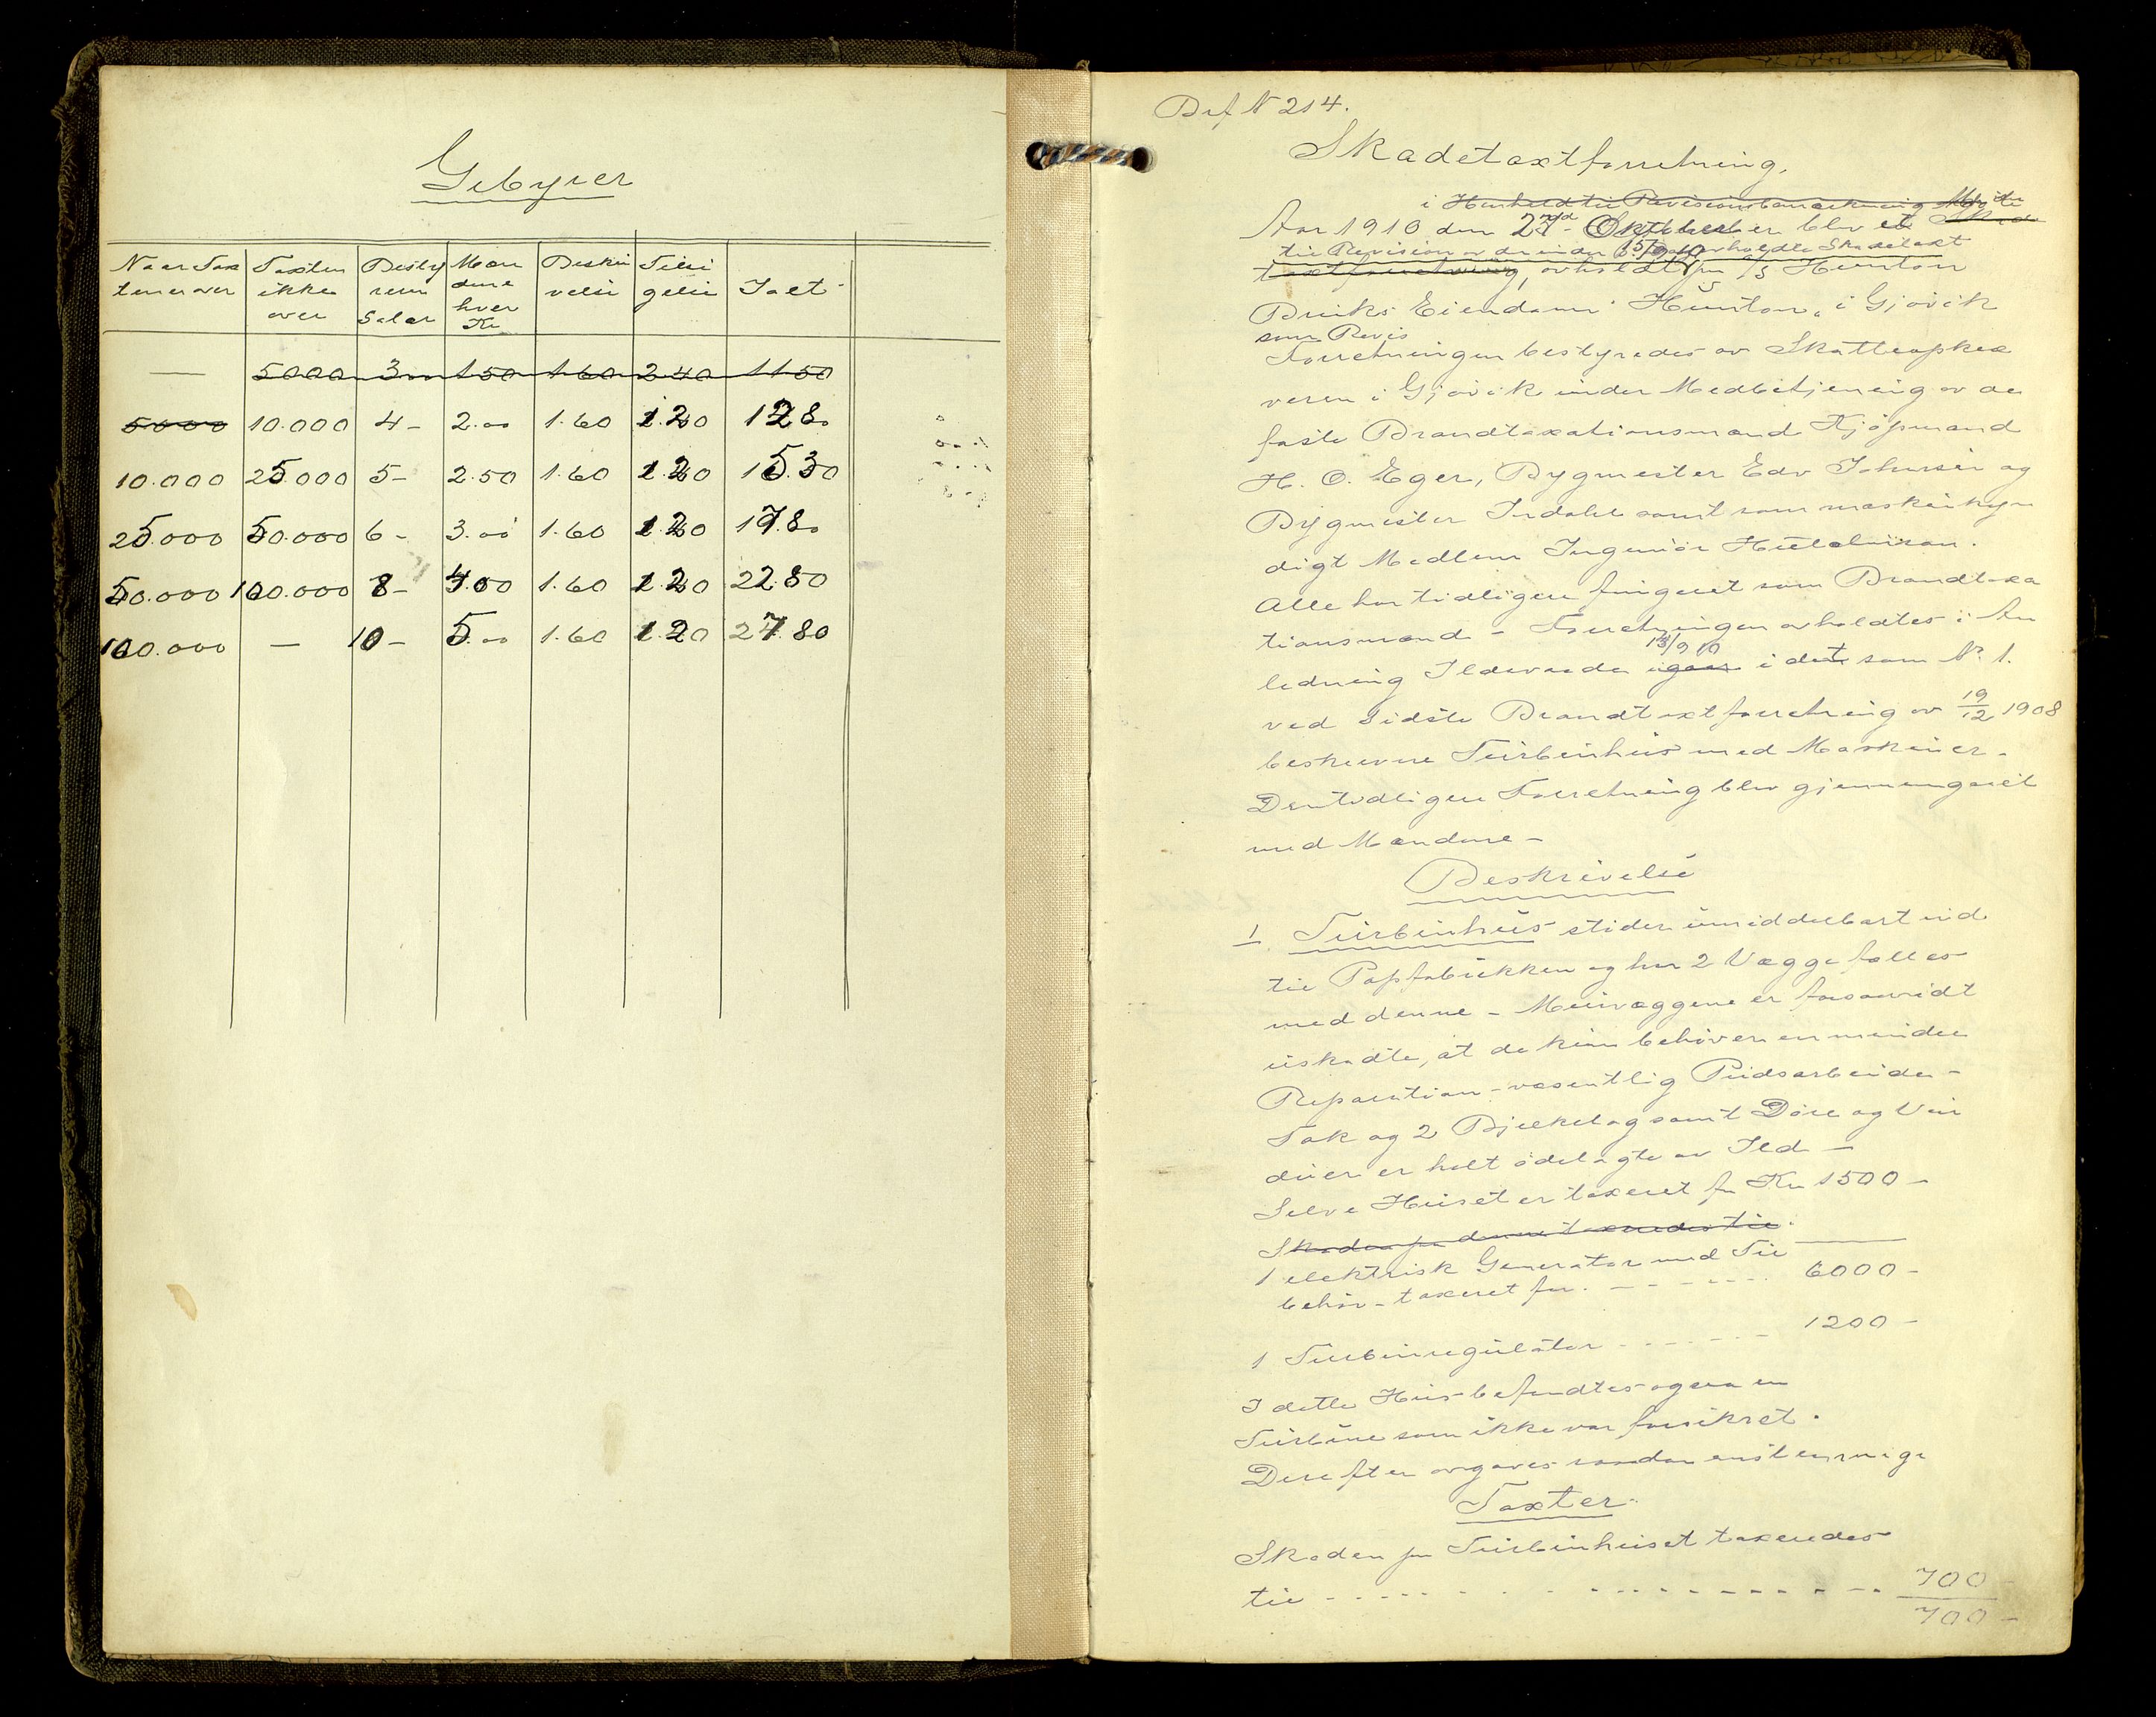 Gebyrer
Naar Tax
tener over
Taxten
ikke
over
Besty
rerens
Salær
Mæn
dene
hver
Kr
Beskri
velse
Tilsi
gelse
Ialt
— 5000 3.00 1.50 1.60 2.40 11.50
5000 10.000 4- 2.00 1.60 1.20 12.80
10.000 25.000 5- 2.50 1.60 1.20 15.30
25.000 50.000 6- 3.00 1.60 1.20 17.80
50.000 100.000 8- 4.00 1.60 1.20 22.80
100.000 — 10- 5.00 1.60 1.20 27.80
Bef N 214.
Skadetaxtforretning.
i Henhold til Revisionsbemærkning Møde
Aar 1910 den Oktober blev et Skade
til Revision av den under 15/9 10 avholdte Skadetaxt
taxtforretning, avholdt paa A/S Hunton
Bruks Eiendom Hunton, i Gjøvik
som Revis
Forretningen bestyredes av Skatteopkræ
veren i Gjøvik under Medbetjening av de
faste Brandtaxationsmænd Kjøpmand
H. O. Eger, Bygmester Edv Johnsen og
Bygmester Indahl samt som maskinkyn
digt Medlem Ingeniör
Alle har tidligere fungeret som Brandtaxa
tionsmænd - Forretningen avholdtes i An
13/9 10
ledning Ildsvaade igaar i det som N. 1.
ved sidste Brandtaxtforretning av 19/12 1908
beskrevne Turbinhus med Maskiner.
Den tidligere Forretning blev gjennemgaaet
med Mændene -
Beskrivelse
1. Turbinhus støder umiddelbart ind
til Papfabrikken og har 2 Vægge fælles
med denne - Murvæggene er forsaavidt
uskadte, at de kun behöver en mindre
Reparation - væsentlig Pudsarbeide -
Tak og 2 Bjelkelag samt Döre og Vin
duer er helt ödelagte av Ild -
Selve Huset er taxeret for Kr 1500 -
Skaden paa denne taxeredes til
1 elektrisk Generator med Til
behör - taxeret for. - - - - - - 6000 -
1 Turbinregulator - - - - - - 1200 -
I dette Hus befandtes ogsaa en
Turbine som ikke var forsikret.
Derefter avgaves saadan enstemmige
Taxter
Skaden paa Turbinhuset taxeredes
til - - - - - - - - - - - - 700
700 -